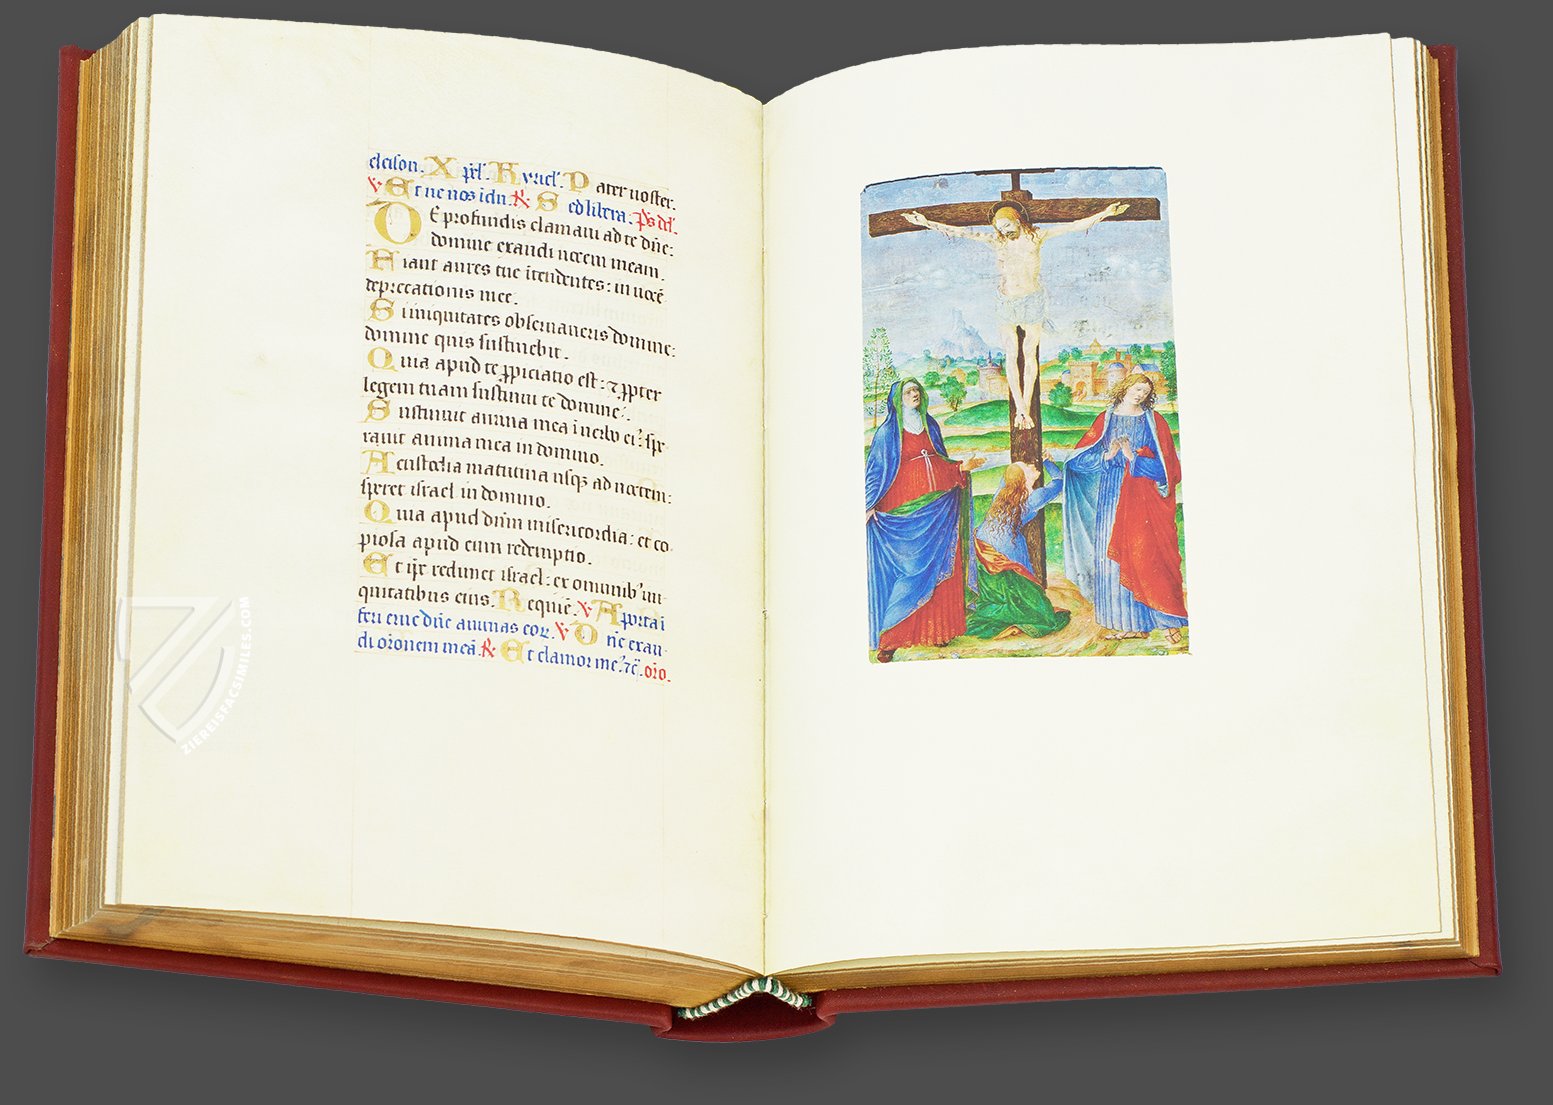 eleison. Xp̄el'. Kyriel'. Pater noster.
℣ Et ne nos idu. ℟ Sed libera. p̄s dd'.
DE profundis clamaui ad te dn̄e:
domine exaudi uocem meam.
Fiant aures tue ītendentes: in uocē
deprecationis mee.
Si iniquitates obseruaueris domine:
domine quis sustinebit.
Quia apud te ꝓpiciatio est: ⁊ ꝓpter
legem tuam sustinui te domine.
Sustinuit anima mea ī uerbo eiꝰ: spe
rauit anima mea in domino.
A custodia matutina usqꝫ ad noctem:
speret israel in domino.
Quia apud dn̄m misericordia: et co
piosa apud eum redemptio.
Et ip̄e redimet israel: ex omnibꝰ ini
quitatibus eius. Requiē. ℣ A porta ī
feri erue dn̄e animas eor. ℣ Dn̄e exau
di orōnem meā. ℟ Et clamor meꝰ. ⁊c̄. orō.
ZIEREISFACSIMILES.COM